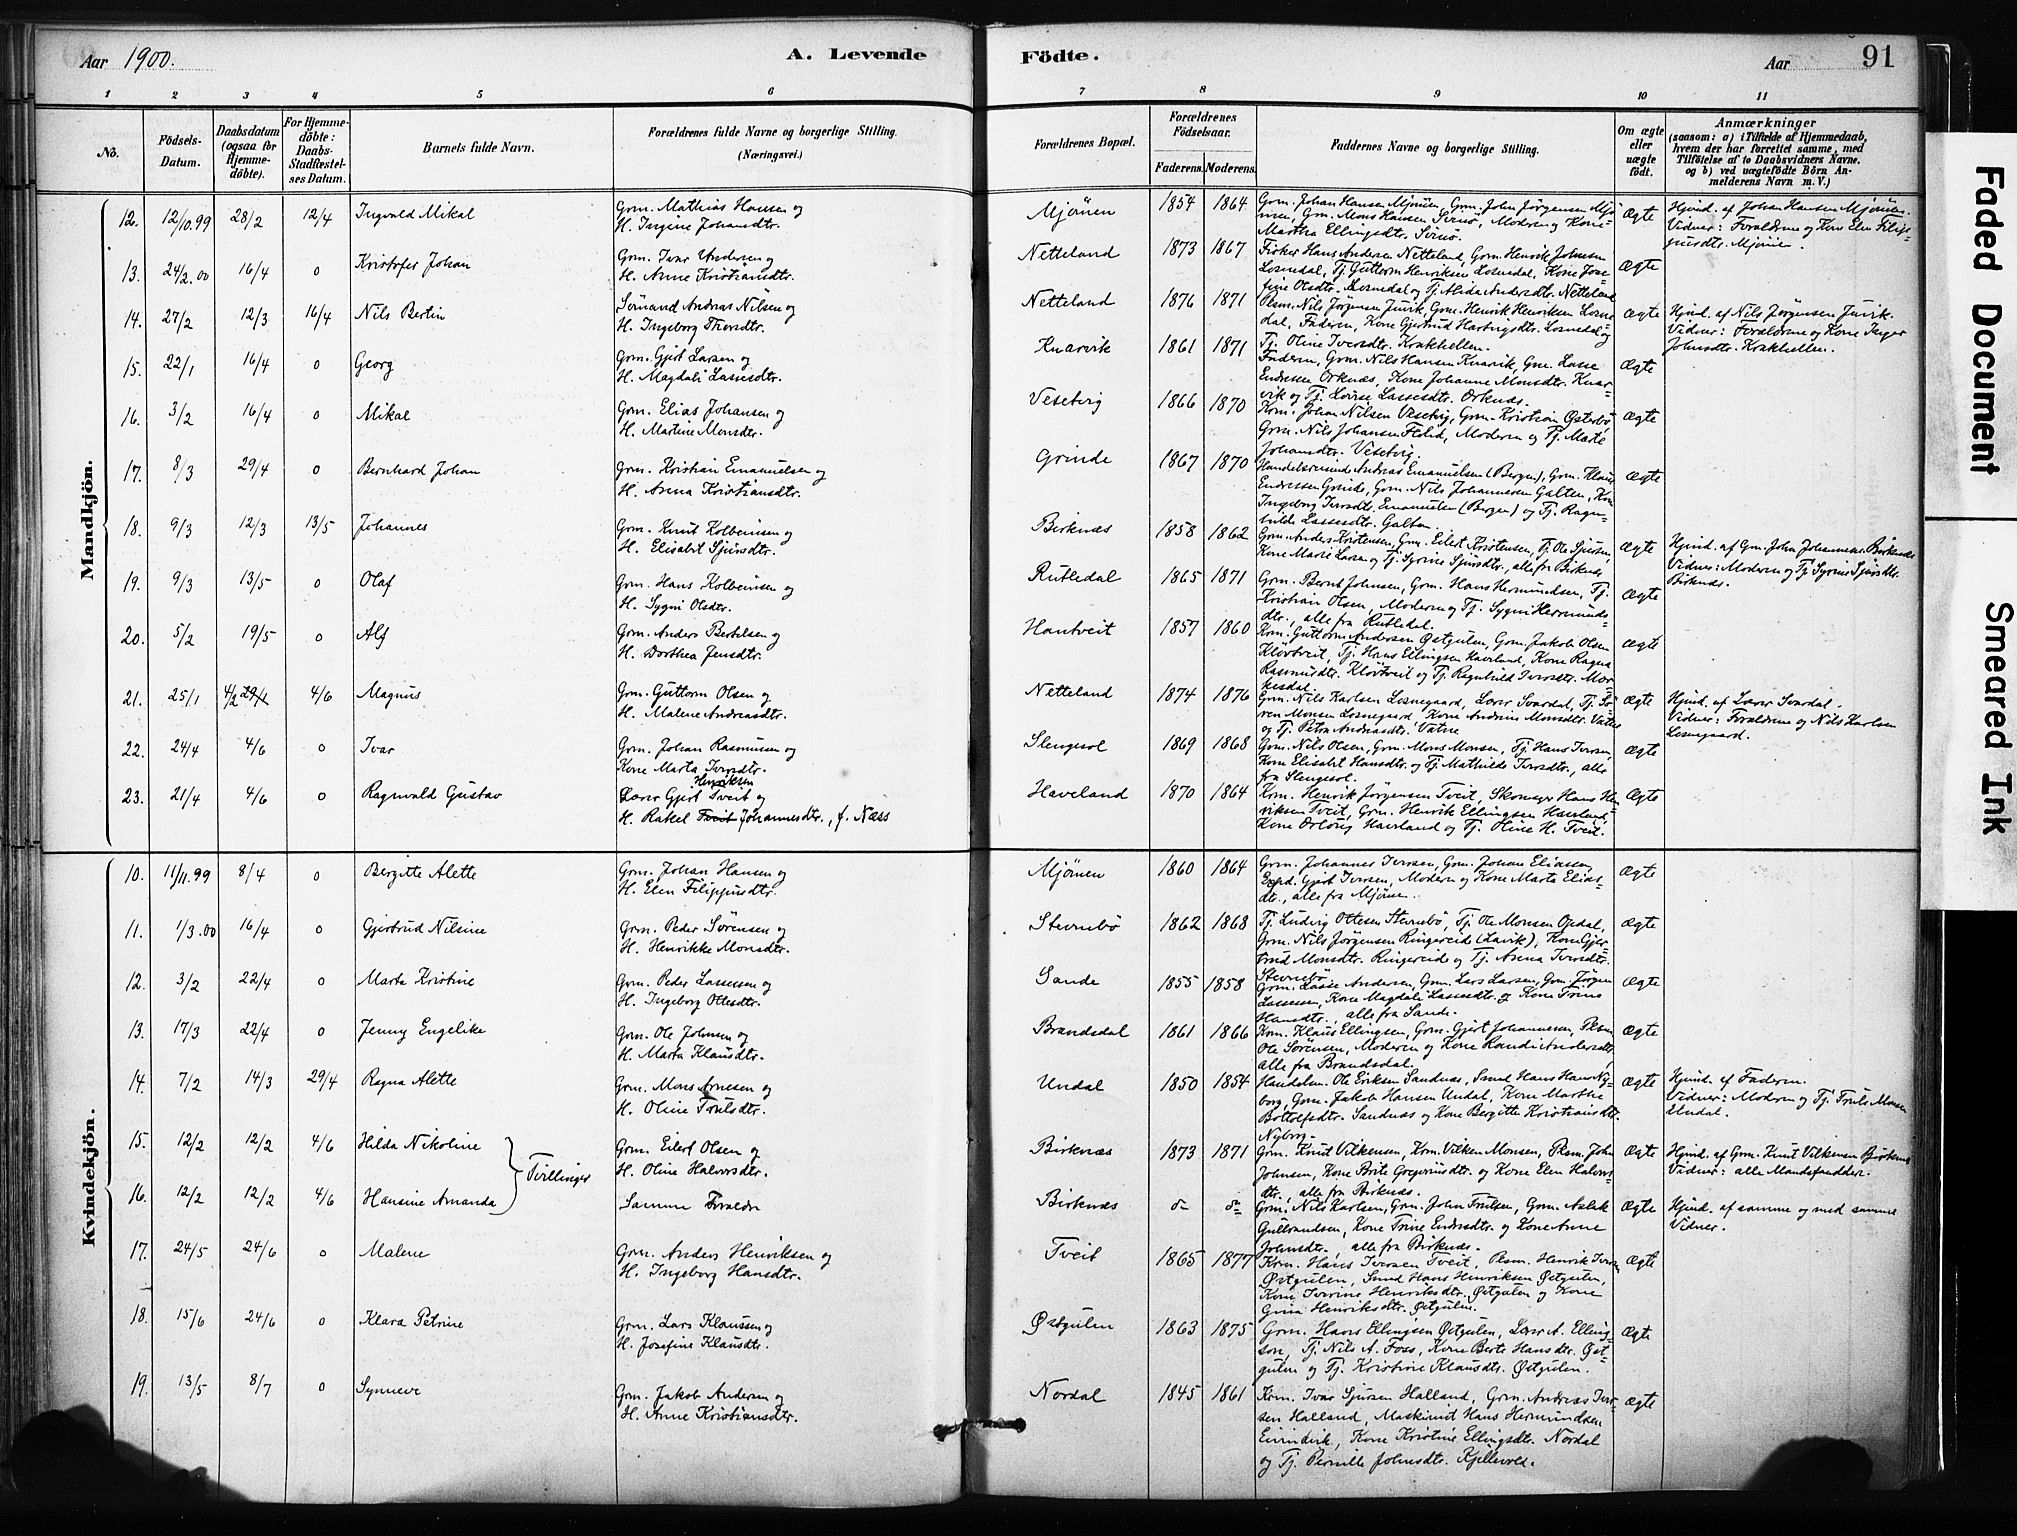 Aar 1900.
A. Levende
Födte.
Aar
91
Faded Document
Smeared Ink
1 2 3 4 5 6 7 8 9 10 11
No.
Födsels-Datum.
Daabsdatum (ogsaa for Hjemmedöbte).
For Hjemmedöbte: Daabs-Stadfæstelses Datum.
Barnets fulde Navn.
Forældrenes fulde Navne og borgerlige Stilling. (Næringsvei.)
Forældrenes Bopæl.
Forældrenes Födselsaar.
Faderens. Moderens.
Faddernes Navne og borgerlige Stilling.
Om ægte eller uægte födt.
Anmærkninger
(saasom: a) i Tilfælde af Hjemmedaab, hvem der har forrettet samme, med Tilföielse af to Daabsvidners Navne, og b) ved uægtefödte Börn Anmelderens Navn m. V.)
Mandkjön.
12. 12/10.99 28/2 12/4 Ingvald Mikal
Grm. Mathias Hansen og
H. Ingine Johansdtr.
Mjønen 1854 1864
Grm. Johan Hansen Mjønen, Grm. John Jørgensen Mjø
nen, Grm. Mons Hansen Sørnø, Moderen og Kone
Martha Ellingsdtr. Sørnø.
Ægte
Hjmd. af Johan Hansen Mjønen.
Vidner: Forældrene og Kone Elen Filip-
pusdtr. Mjønen.
13. 24/2.00 16/4 0 Kristofer Johan
Grm. Ivar Andersen og
H. Anne Kristiansdtr.
Netteland 1873 1867
Fisker Hans Andersen Netteland, Grm. Henrik Johnsen
Losnedal, Tj. Guttorm Henriksen Losnedal, Kone Jose-
fine Olsdtr. Losnedal og Tj. Alida Andersdtr. Netteland
Ægte
14. 27/2 12/3 16/4 Nils Bertin
Sømand Andreas Nilsen og
H. Ingeborg Thorsdtr.
Netteland 1876 1871
Plsm. Nils Jørgensen Juvik, Grm. Henrik Henriksen Losne-
dal, Faderen, Kone Gjertrud Hartvigsdtr. Losnedal og
Tj. Oline Iversdtr. Krakhellen.
Ægte
Hjmd. af Nils Jørgensen Juvik.
Vidner: Forældrene og Kone Inger
Johnsdtr. Krakhellen.
15. 22/1 16/4 0 Georg
Grm. Gjert Larsen og
H. Magdali Lassesdtr.
Knarvik 1861 1871
Faderen, Grm. Nils Hansen Knarvik, Grm. Lasse
Endresen Orknæs, Kone Johanne Monsdtr. Knar
vik og Tj. Lovise Lassesdtr. Orknæs.
Ægte
16. 3/2 16/4 0 Mikal
Grm. Elias Johansen og
H. Martine Monsdtr.
Vesetvig 1866 1870
Krm. Johan Nilsen Vesetvig, Grm. Kristian Østerbø,
Grm. Nils Johansen Flolid, Moderen og Tj. Marte
Johansdtr. Vesetvig.
Ægte
17. 8/3 29/4 0 Bernhard Johan
Grm. Kristian Emanuelsen og
H. Anna Kristiansdtr.
Grinde 1867 1870
Handelsreisend Andreas Emanuelsen (Bergen), Grm. Klaus
Endressen Grinde, Grm. Nils Johannesen Galten, Kone
Ingeborg Iversdtr. Emanuelsen (Bergen) og Tj. Ragn-
hilde Lassesdtr. Galten.
Ægte
18. 9/3 12/3 13/5 Johannes
Grm. Knut Kolbeinsen og
H. Elisabet Sjursdtr.
Birknæs 1858 1862
Grm. Anders Kristensen, Grm. Eilert Kristensen, Tj. Ole Sjursen,
Kone Marie Larsen og Tj. Syrine Sjursdtr., alle fra Birknæs
Ægte
Hjmd. af Grm. John Johannesen Birknæs
Vidner: Moderen og Tj. Syrine Sjursdtr.
Birknæs.
19. 9/3 13/5 0 Olaf
Grm. Hans Kolbeinsen og
H. Sygni Olsdtr.
Rutledal 1865 1871
Grm. Bernt Johnsen, Grm. Hans Hermundsen, Tj.
Kristian Olsen, Moderen og Tj. Sygni Hermunds-
dtr., alle fra Rutledal.
Ægte
20. 5/2 19/5 0 Alf
Grm. Anders Bertelsen og
H. Dorthea Jensdtr.
Hantveit 1857 1860
Krm. Guttorm Andersen Østgulen, Grm. Jakob Olsen
Kløvtveit, Tj. Hans Ellingsen Haveland, Kone Ragna
Rasmusdtr. Kløvtveit og Tj. Ragnhild Iversdtr. Mor-
kesdal.
Ægte
21. 25/1 4/2 29/1 4/6 Magnus
Grm. Guttorm Olsen og
H. Malene Andreasdtr.
Netteland 1874 1876
Grm. Nils Karlsen Losnegaard, Lærer Svardal, Tj. Sø
ren Monsen Losnegaard, Kone Andrine Monsdtr. Vatne
og Tj. Petra Andreasdtr. Vatne
Ægte
Hjmd. af Lærer Svardal.
Vidner: Forældrene og Nils Karlsen
Losnegaard.
22. 24/4 4/6 0 Ivar
Grm. Johan Rasmussen og
Kone Marta Iversdtr.
Slengesol 1869 1868
Grm. Nils Olsen, Grm. Mons Monsen, Tj. Hans Iversen,
Kone Elisabet Hansdtr. og Tj. Mathilde Iversdtr., alle
fra Slengesol.
Ægte
23. 21/4 4/6 0 Ragnvald Gustav
Henriksen
Lærer Gjert Tveit og
H. Rakel Tveit Johannesdtr., f. Næss
Haveland 1870 1864
Krm. Henrik Jørgensen Tveit, Skomager Hans Hen
riksen Tveit, Grm. Henrik Ellingsen Haveland,
Kone Orloug Haverland og Tj. Oline H. Tveit.
Ægte
Kvindekjön.
10. 11/11.99 8/4 0 Bergitte Alette
Grm. Johan Hansen og
H. Elen Filippusdtr.
Mjønen 1860 1864
Grm. Johannes Iversen, Grm. Johan Eliassen,
Exped. Gjert Iversen, Moderen og Kone Marta Elias-
dtr., alle fra Mjønen.
Ægte
11. 1/3.00 16/4 0 Gjertrud Nilsine
Grm. Peder Sørensen og
H. Henrikke Monsdtr.
Stevnebø 1862 1868
Tj. Ludvig Ottesen Stevnebø, Tj. Ole Monsen Opdal,
Grm. Nils Jørgensen Ringereid (Lavik), Kone Gjer-
trud Monsdtr. Ringereid og Tj. Anna Iversdtr.
Stevnebø
Ægte
12. 3/2 22/4 0 Marta Kristine
Grm. Peder Lassesen og
H. Ingeborg Ottesdtr.
Sande 1855 1858
Grm. Lasse Andersen, Grm. Lars Larsen, Grm. Jørgen
Lassesen, Kone Magdali Lassesdtr. og Kone Trine
Hansdtr., alle fra Sande.
Ægte
13. 17/3 22/4 0 Jenny Engelike
Grm. Ole Johnsen og
H. Marta Klausdtr.
Brandsdal 1861 1866
Krm. Klaus Ellingsen, Grm. Gjert Johannesen, Plsm.
Ole Sørensen, Moderen og Kone Randi Andersdtr.
alle fra Brandsdal.
Ægte
14. 7/2 14/3 29/4 Ragna Alette
Grm. Mons Arnesen og
H. Oline Trulsdtr.
Undal 1850 1854
Handelsm. Ole Eriksen Sandnæs, Smed Hans Hansen Ny-
borg, Grm. Jakob Hansen Undal, Kone Marthe
Bottolfsdtr. Sandnæs og Kone Bergitte Kristiansdtr.
Nyborg.
Ægte
Hjmd. af Faderen.
Vidner: Moderen og Tj. Truls Monsen
Undal.
15. 12/2 12/2 4/6 Hilda Nikoline
Tvillinger
Grm. Eilert Olsen og
H. Oline Halvorsdtr.
Birknæs 1873 1871
Grm. Knut Vilkensen, Krm. Vilken Monsen, Plsm. John
Johnsen, Kone Brite Gregoriusdtr. og Kone Elen Halvors
dtr., alle fra Birknæs.
Ægte
Hjmd. af Grm. Knut Vilkensen Birknæs
Vidner: alle Mandsfaddere.
16. 12/2 12/2 4/6 Hansine Amanda
Samme Forældre
Birknæs
Grm. Nils Karlsen, Grm. John Trulsen, Grm. Aslak
Gulbrandsen, Kone Trine Endresdtr. og Kone Anne
Johnsdtr., alle fra Birknæs.
Ægte
Hjmd. af samme og med samme
Vidner.
17. 24/5 24/6 0 Malene
Grm. Anders Henriksen og
H. Ingeborg Hansdtr.
Tveit 1865 1877
Krm. Hans Iversen Tveit, Plsm. Henrik Iversen
Østgulen, Smed Hans Henriksen Østgulen,
Kone Iverine Henriksdtr. Østgulen og Kone
Gina Henriksdtr. Østgulen.
Ægte
18. 15/6 24/6 0 Klara Petrine
Grm. Lars Klaussen og
H. Josefine Klausdtr.
Østgulen 1863 1875
Grm. Hans Ellingsen Østgulen, Lærer A. Elling-
sen, Tj. Nils A. Foss, Kone Berte Hansdtr. Øst-
gulen og Tj. Kristine Klausdtr. Østgulen.
Ægte
19. 13/5 8/7 0 Synneve
Grm. Jakob Andersen og
H. Anne Kristiansdtr.
Nordal 1845 1861
Krm. Ivar Sjursen Halland, Grm. Andreas Iver-
sen Halland, Maskinist Hans Hermundsen
Eivindvik, Kone Kristine Ellingsdtr. Nordal
og Tj. Pernille Johnsdtr. Kjellevold.
Ægte